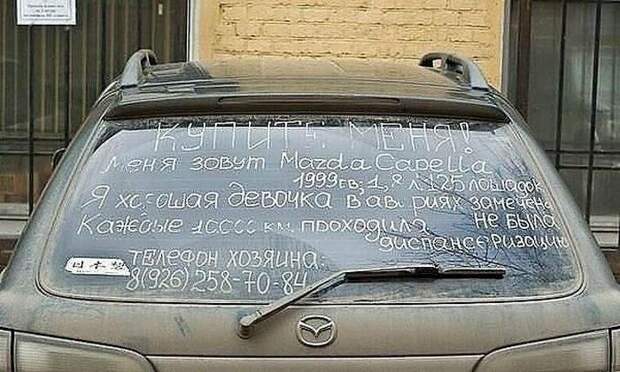 КУПИТЕ МЕНЯ!
Меня зовут Mazda Capella
1999 г.в; 1,8 л. 125 лошадок
Я хорошая девочка в авариях замечена
не была
Каждые 10000 км. проходила
диспансеризацию
ТЕЛЕФОН ХОЗЯИНА:
8(926)258-70-84